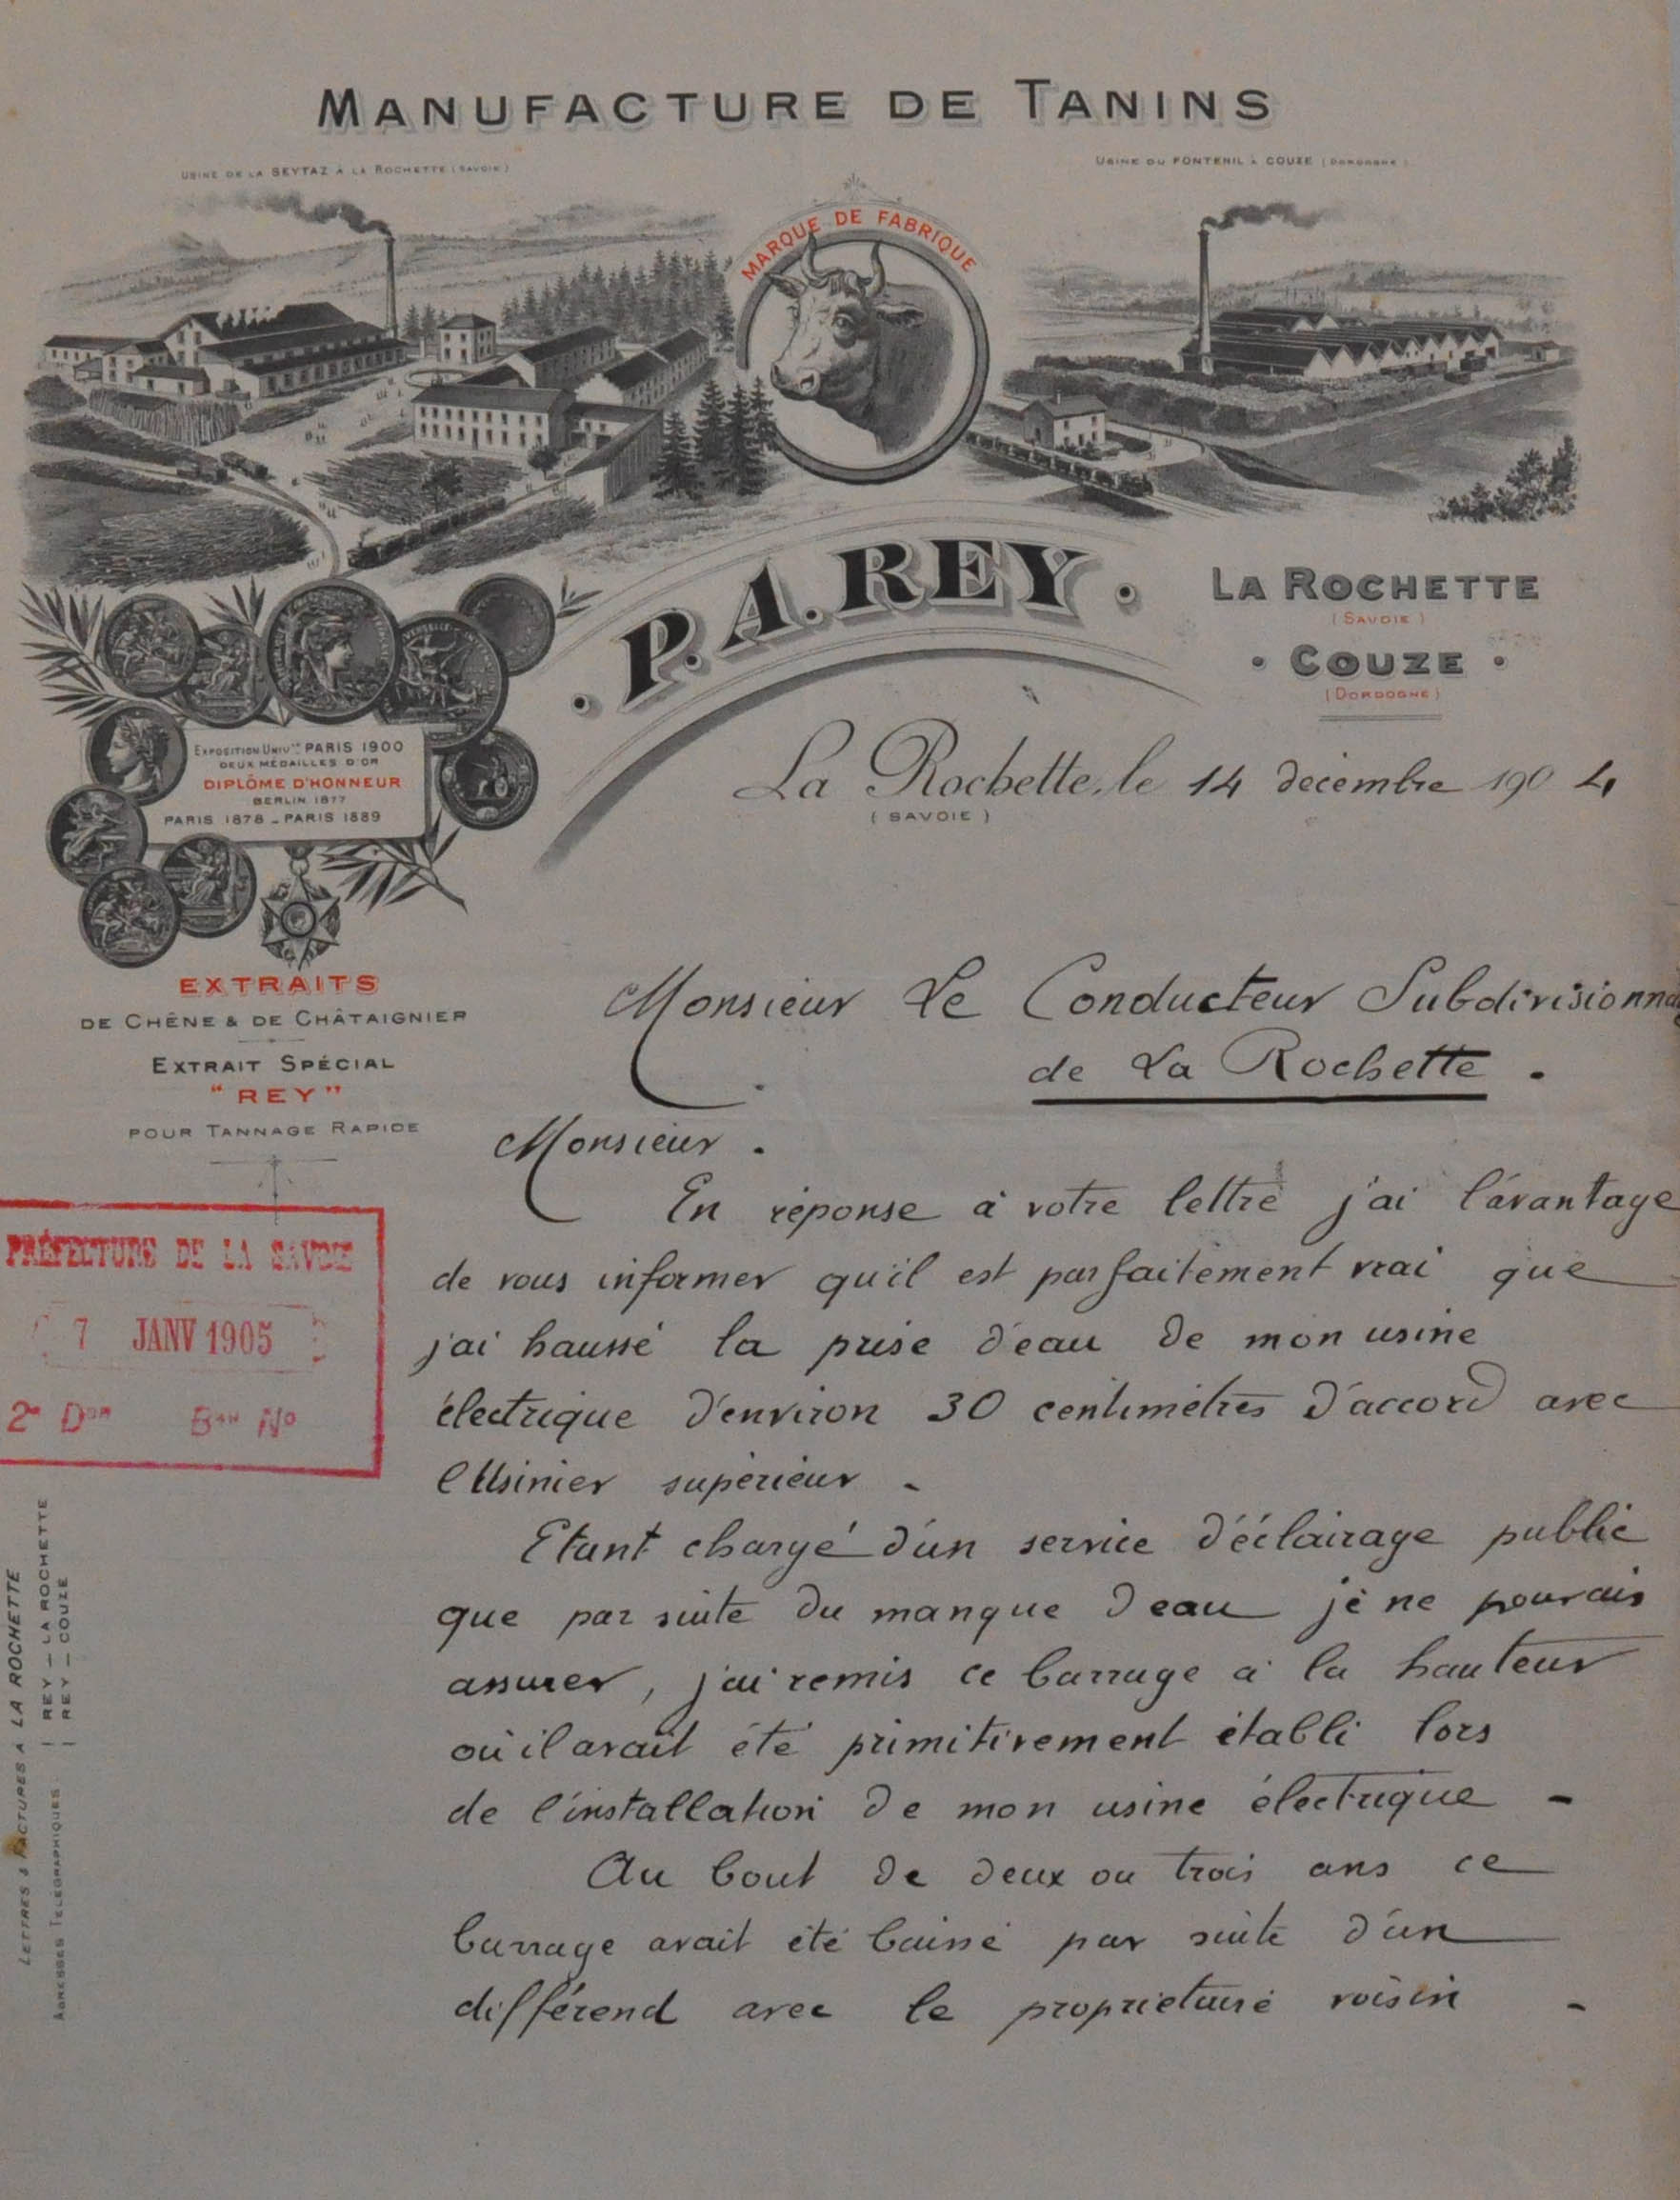 MANUFACTURE DE TANINS
USINE DE LA SEYTAZ À LA ROCHETTE (SAVOIE)
USINE DU FONTENIL À COUZE (DORDOGNE)
MARQUE DE FABRIQUE
P.A. REY.
LA ROCHETTE
(SAVOIE)
COUZE
(DORDOGNE)
EXPOSITION UNIV^lle PARIS 1900
DEUX MÉDAILLES D'OR
DIPLÔME D'HONNEUR
BERLIN 1877
PARIS 1878 - PARIS 1889
La Rochette, le 14 décembre 1904
(SAVOIE)
EXTRAITS
DE CHÊNE & DE CHÂTAIGNIER
EXTRAIT SPÉCIAL
"REY"
POUR TANNAGE RAPIDE
Monsieur Le Conducteur Subdivisionna
de La Rochette.
Monsieur.
En réponse à votre lettre j'ai l'avantage
de vous informer qu'il est parfaitement vrai que
j'ai haussé la prise d'eau de mon usine
électrique d'environ 30 centimètres d'accord avec
l'Usinier supérieur -
Etant chargé d'un service d'éclairage public
que par suite du manque d'eau je ne pouvais
assurer, j'ai remis ce barrage à la hauteur
où il avait été primitivement établi lors
de l'installation de mon usine électrique -
Au bout de deux ou trois ans ce
barrage avait été baissé par suite d'un
différend avec le propriétaire voisin -
PRÉFECTURE DE LA SAVOIE
7 JANV 1905
2e Don Bau No
LETTRES & FACTURES A LA ROCHETTE
ADRESSES TELÉGRAPHIQUES
REY - LA ROCHETTE
REY - COUZE